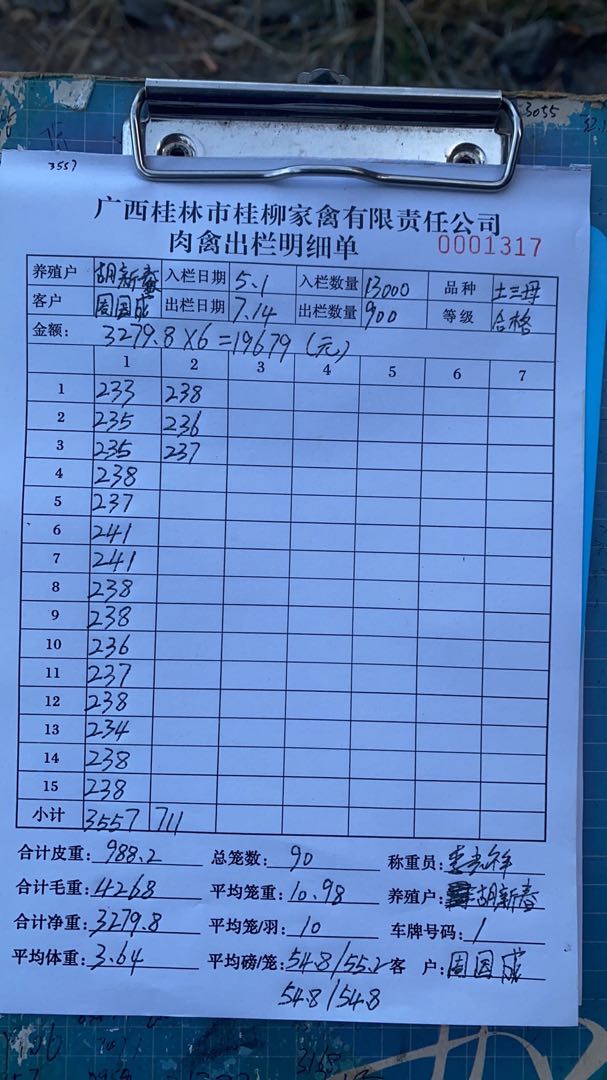 3055
3557
广西桂林市桂柳家禽有限责任公司
肉禽出栏明细单 0001317
养殖户 胡新春 入栏日期 5.1 入栏数量 13000 品种 土三母
客户 周国成 出栏日期 7.14 出栏数量 900 等级 合格
金额: 3279.8×6=19679 (元)
1 2 3 4 5 6 7
1 233 238
2 235 236
3 235 237
4 238
5 237
6 241
7 241
8 238
9 238
10 236
11 237
12 238
13 234
14 238
15 238
小计 3557 711
合计皮重: 988.2 总笼数: 90 称重员:
合计毛重: 4268 平均笼重: 10.98 养殖户: 胡新春
合计净重: 3279.8 平均笼/羽: 10 车牌号码: /
平均体重: 3.64 平均磅/笼: 54.8/55.2 客 户: 周国成
54.8/54.8